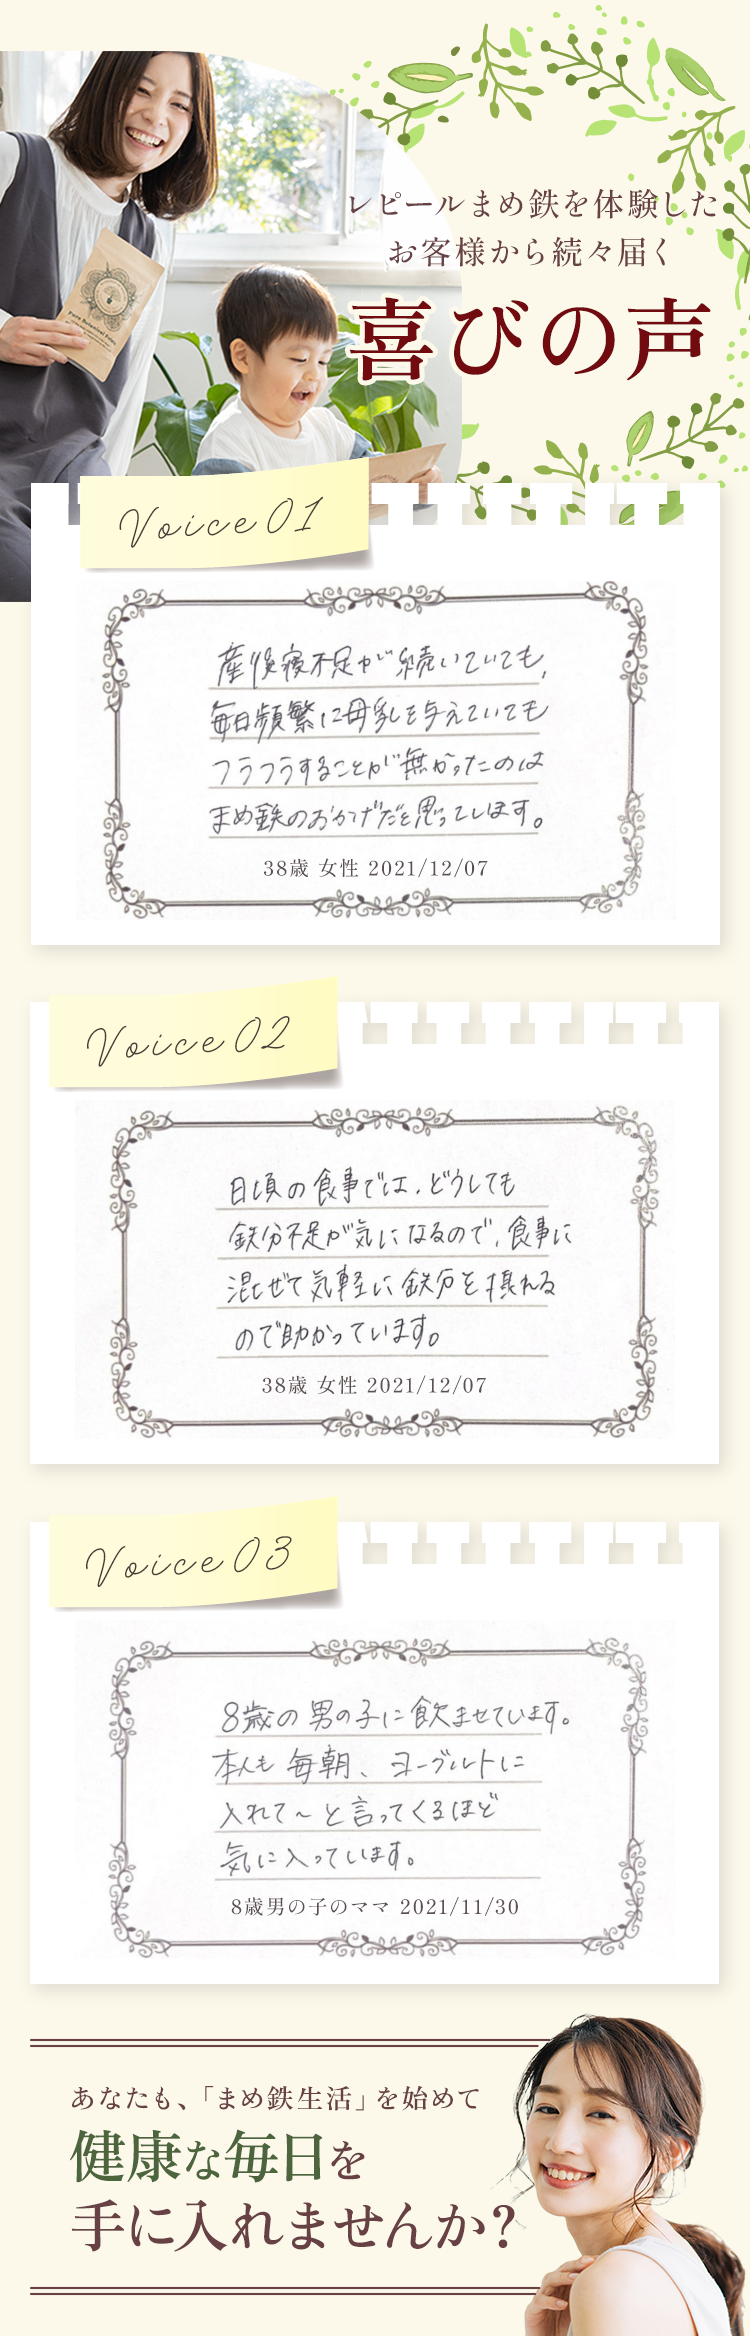 レピールまめ鉄を体験した
お客様から続々届く
喜びの声
Pure Botanical Foods
Voice 01
産後寝不足が続いていても、
毎日頻繁に母乳を与えていても
フラフラすることが無かったのは
まめ鉄のおかげだと思っています。
38歳 女性 2021/12/07
Voice 02
日頃の食事では、どうしても
鉄分不足が気になるので、食事に
混ぜて気軽に鉄分を摂れる
ので助かっています。
38歳 女性 2021/12/07
Voice 03
8歳の男の子に飲ませています。
本人も毎朝、ヨーグルトに
入れて〜と言ってくるほど
気に入っています。
8歳男の子のママ 2021/11/30
あなたも、「まめ鉄生活」を始めて
健康な毎日を
手に入れませんか？